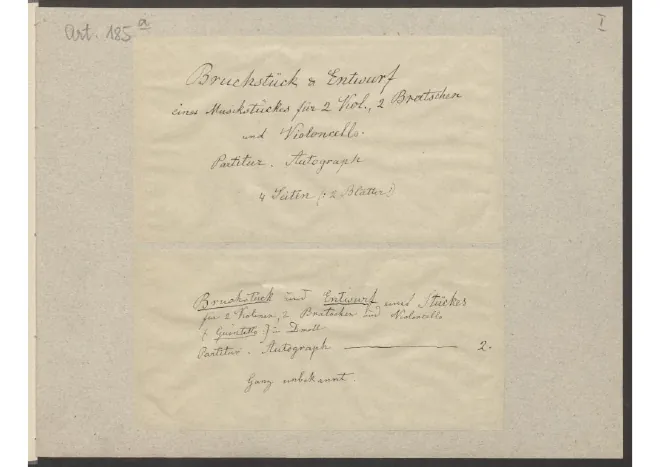 Art. 185 a
I
Bruchstück & Entwurf
eines Musikstückes für 2 Viol., 2 Bratschen
und Violoncello.
Partitur. Autograph
4 Seiten (: 2 Blätter :)
Bruchstück und Entwurf eines Stückes
für 2 Violinen, 2 Bratschen und Violoncello
(: Quintetts :) in D moll
Partitur. Autograph 2.
Ganz unbekannt.